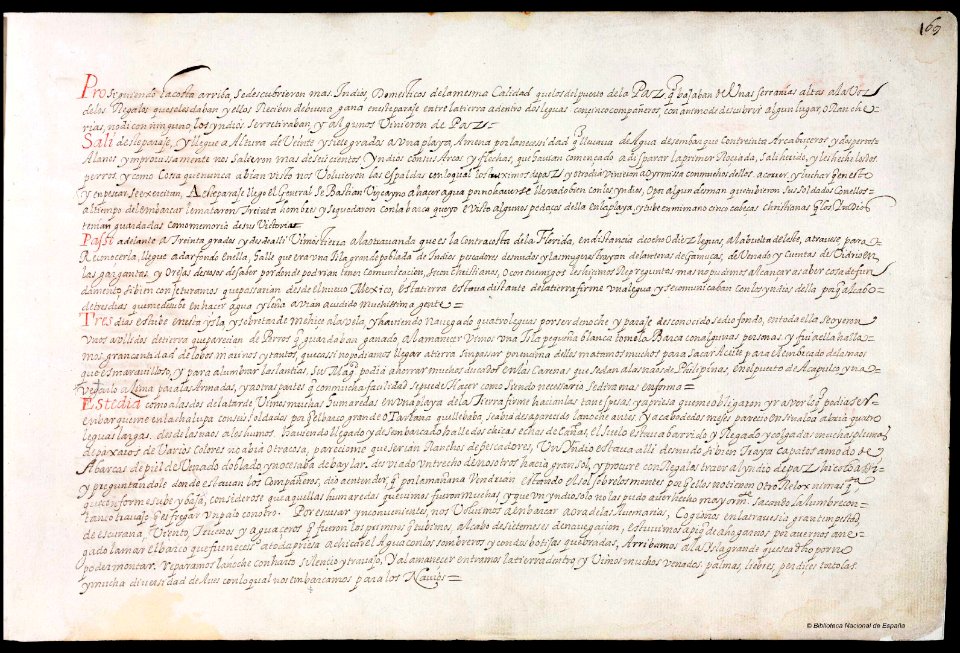 169
Prosiguiendo la costa arriba, se descubrieron mas Indios, Domesticos de la mesma Calidad que los del puerto de la Paz que bajaban de Unas serranias altas a la Voz
de los Regalos que se les daban y ellos Reciben de buena gana en este paraje entre la tierra adentro dos leguas con cinco compañeros, con animo de descubrir algun lugar, o Ranche
rias, no di con ninguno, los yndios se retiraban, y algunos Vinieron de Paz
Sali deste paraje, y llegue a Altura de Veinte y siete grados a una playa, Amena por la necessidad que llevava de Agua desembarque con treinta Arcabuceros y dos perros
Alanos y improvisamente nos Salieron mas de seiscientos Yndios con sus Arcos y flechas, que havian començado a disparar la primer Rociada, Sali herido, y les heche los dos
perros y como Cosa que nunca abian visto nos Volvieron las espaldas con lo qual los hizimos de paz y otro dia Vinieron a oyr missa con muchos dellos a correr, y luchar que en esto
y en pescar se exercitan, A este paraje llego el General Sebastian Vizcayno a hacer agua por no haver de llevado bien con los yndios, O por algun desman que tubieron sus soldados con ellos
al tiempo del embarcar le mataron Treinta hombres y se quedaron con la barca que yo e visto algunos pedaços della en la playa, y tube en mi mano cinco cabeças Christianas que los Indios
tenian guardadas como memoria de sus Victorias
Passe adelante a Treinta grados y desde alli Vimos tierra a la otra vanda que es la Contracosta de la Florida, en distancia de ocho o diez leguas, a la buelta del este, atravese para
Reconocerla, llegue a dar fondo en ella, halle que era una Isla grande poblada de Indios pescadores desnudos y las mugeres trayan delanteras de Camuças, de Venado y Cuentas de Vidrio en
las gargantas, y Orejas deseoso de saber por donde podrian tener comunicacion, si con Christianos, O con enemigos les hizimos Repreguntas mas no pudimos alcançar a saber cosa de fun
damento, si bien conjeturamos que passarian desde el nuevo Mexico, esta tierra estava distante de la tierra firme una legua y se comunicaban con los yndios della para que al cabo
de tres dias que me detube en hacer agua y leña avian acudido muchissima gente
Tres dias estube en esta ysla, y sobretarde me hice a la vela, y haviendo navegado quatro leguas por ser de noche y paraje desconocido se dio fondo, en toda ella se oyeron
unos aullidos de tierra que parecian de Perros que guardaban ganado al amanecer Vimos una Isla pequeña blanca tome la Barca con algunas personas y fui a ella halla
mos gran cantidad de lobos marinos y tantos, que cassi no podiamos llegar a tierra sin passar por encima dellos matamos muchos para sacar Aceite para Remedio de la nao
que es maravilloso, y para alumbrar las lantias, Su Magd podia ahorrar muchos ducados en las Carenas que se dan a las naos de Philipinas en el puerto de Acapulco y na
vegarlo a Lima para las Armadas, y a otras partes que con mucha facilidad se puede Hacer como siendo necesario se dara mas en forma
Este dia como a las dos de la tarde Vimos muchas humaredas en una playa de la Tierra firme hacianlas tan espesas y apriesa que me obligaron yr a ver lo que podia ser
embarqueme en la chalupa con seis soldados por que el barco grande o Tartana que llebaba, se abia desaparecido la noche antes. Y a cabo de dos meses parecio en Sinaloa abria quatro
leguas largas. desde las naos a los humos. haviendo llegado y desembarcado halle dos chicas echas de Cañas, el suelo estava barrido y Regado y colgadas muchas plumas
de paxaros de Varios colores no abia otra cosa, parecione que serian Ranchos de pescadores, Un Yndio estava alli desnudo si bien traya çapatos a modo de
Abarcas de piel de Venado doblado, y no cesaba de baylar. desviado un trecho de nosotros hacia gran sol, y procure con Regalos traer al yndio de paz hicelo assi
y preguntandole donde estavan los Compañeros, dio a entender, que por la mañana Vendrian estando el sol sobre los montes por que ellos no tienen otro Relox ni mas que
que conforme sube y baja, considerose que aquellas humaredas que vimos fueron muchas y que un yndio solo no las pudo aver hecho mayormente sacando la lumbre con
tanto trabajo que es fregar un palo con otro. Por escusar ynconvenientes, nos Volvimos a Embarcar a ora de las Avemarias, Cogionos en la travesia gran tempestad,
de escurana, Viento, Truenos y aguaceros que fueron los primeros que tubimos, al cabo de siete meses de navegacion, estuvimos a pique de ahogarnos por avernos ane
gado la mar el barco que fue necess° a toda priesa achicar el Agua con los sombreros y con dos botijas quebradas, Arribamos a la Isla grande que esta dho por no
poder montar. reparamos la noche con harto silencio y trabajo, Y al amanecer entramos la tierra dentro y Vimos muchos venados. palmas, liebres, perdices tortolas.
y mucha diversidad de Aves con lo qual nos embarcamos para los Navios
© Biblioteca Nacional de España